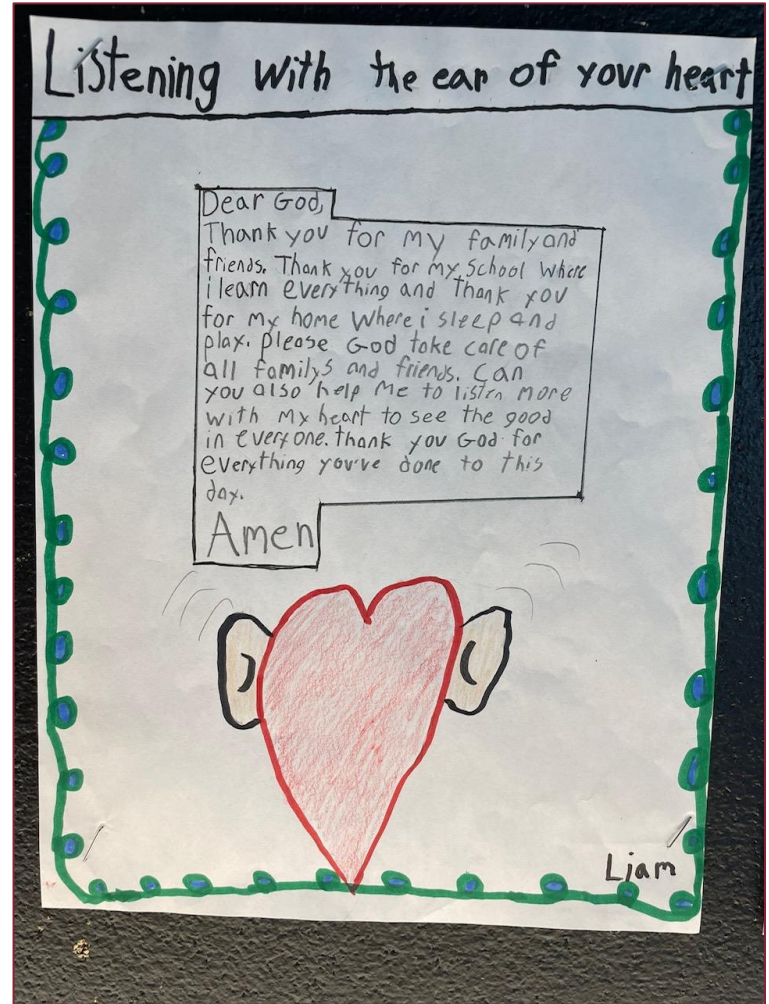 Listening with the ear of your heart
Dear God,
Thank you for my family and
friends. Thank you for my school where
i learn everything and thank you
for my home where i sleep and
play. please God take care of
all familys and friends. Can
you also help me to listen more
with my heart to see the good
in everyone. thank you God for
everything you've done to this
day.
Amen
Liam